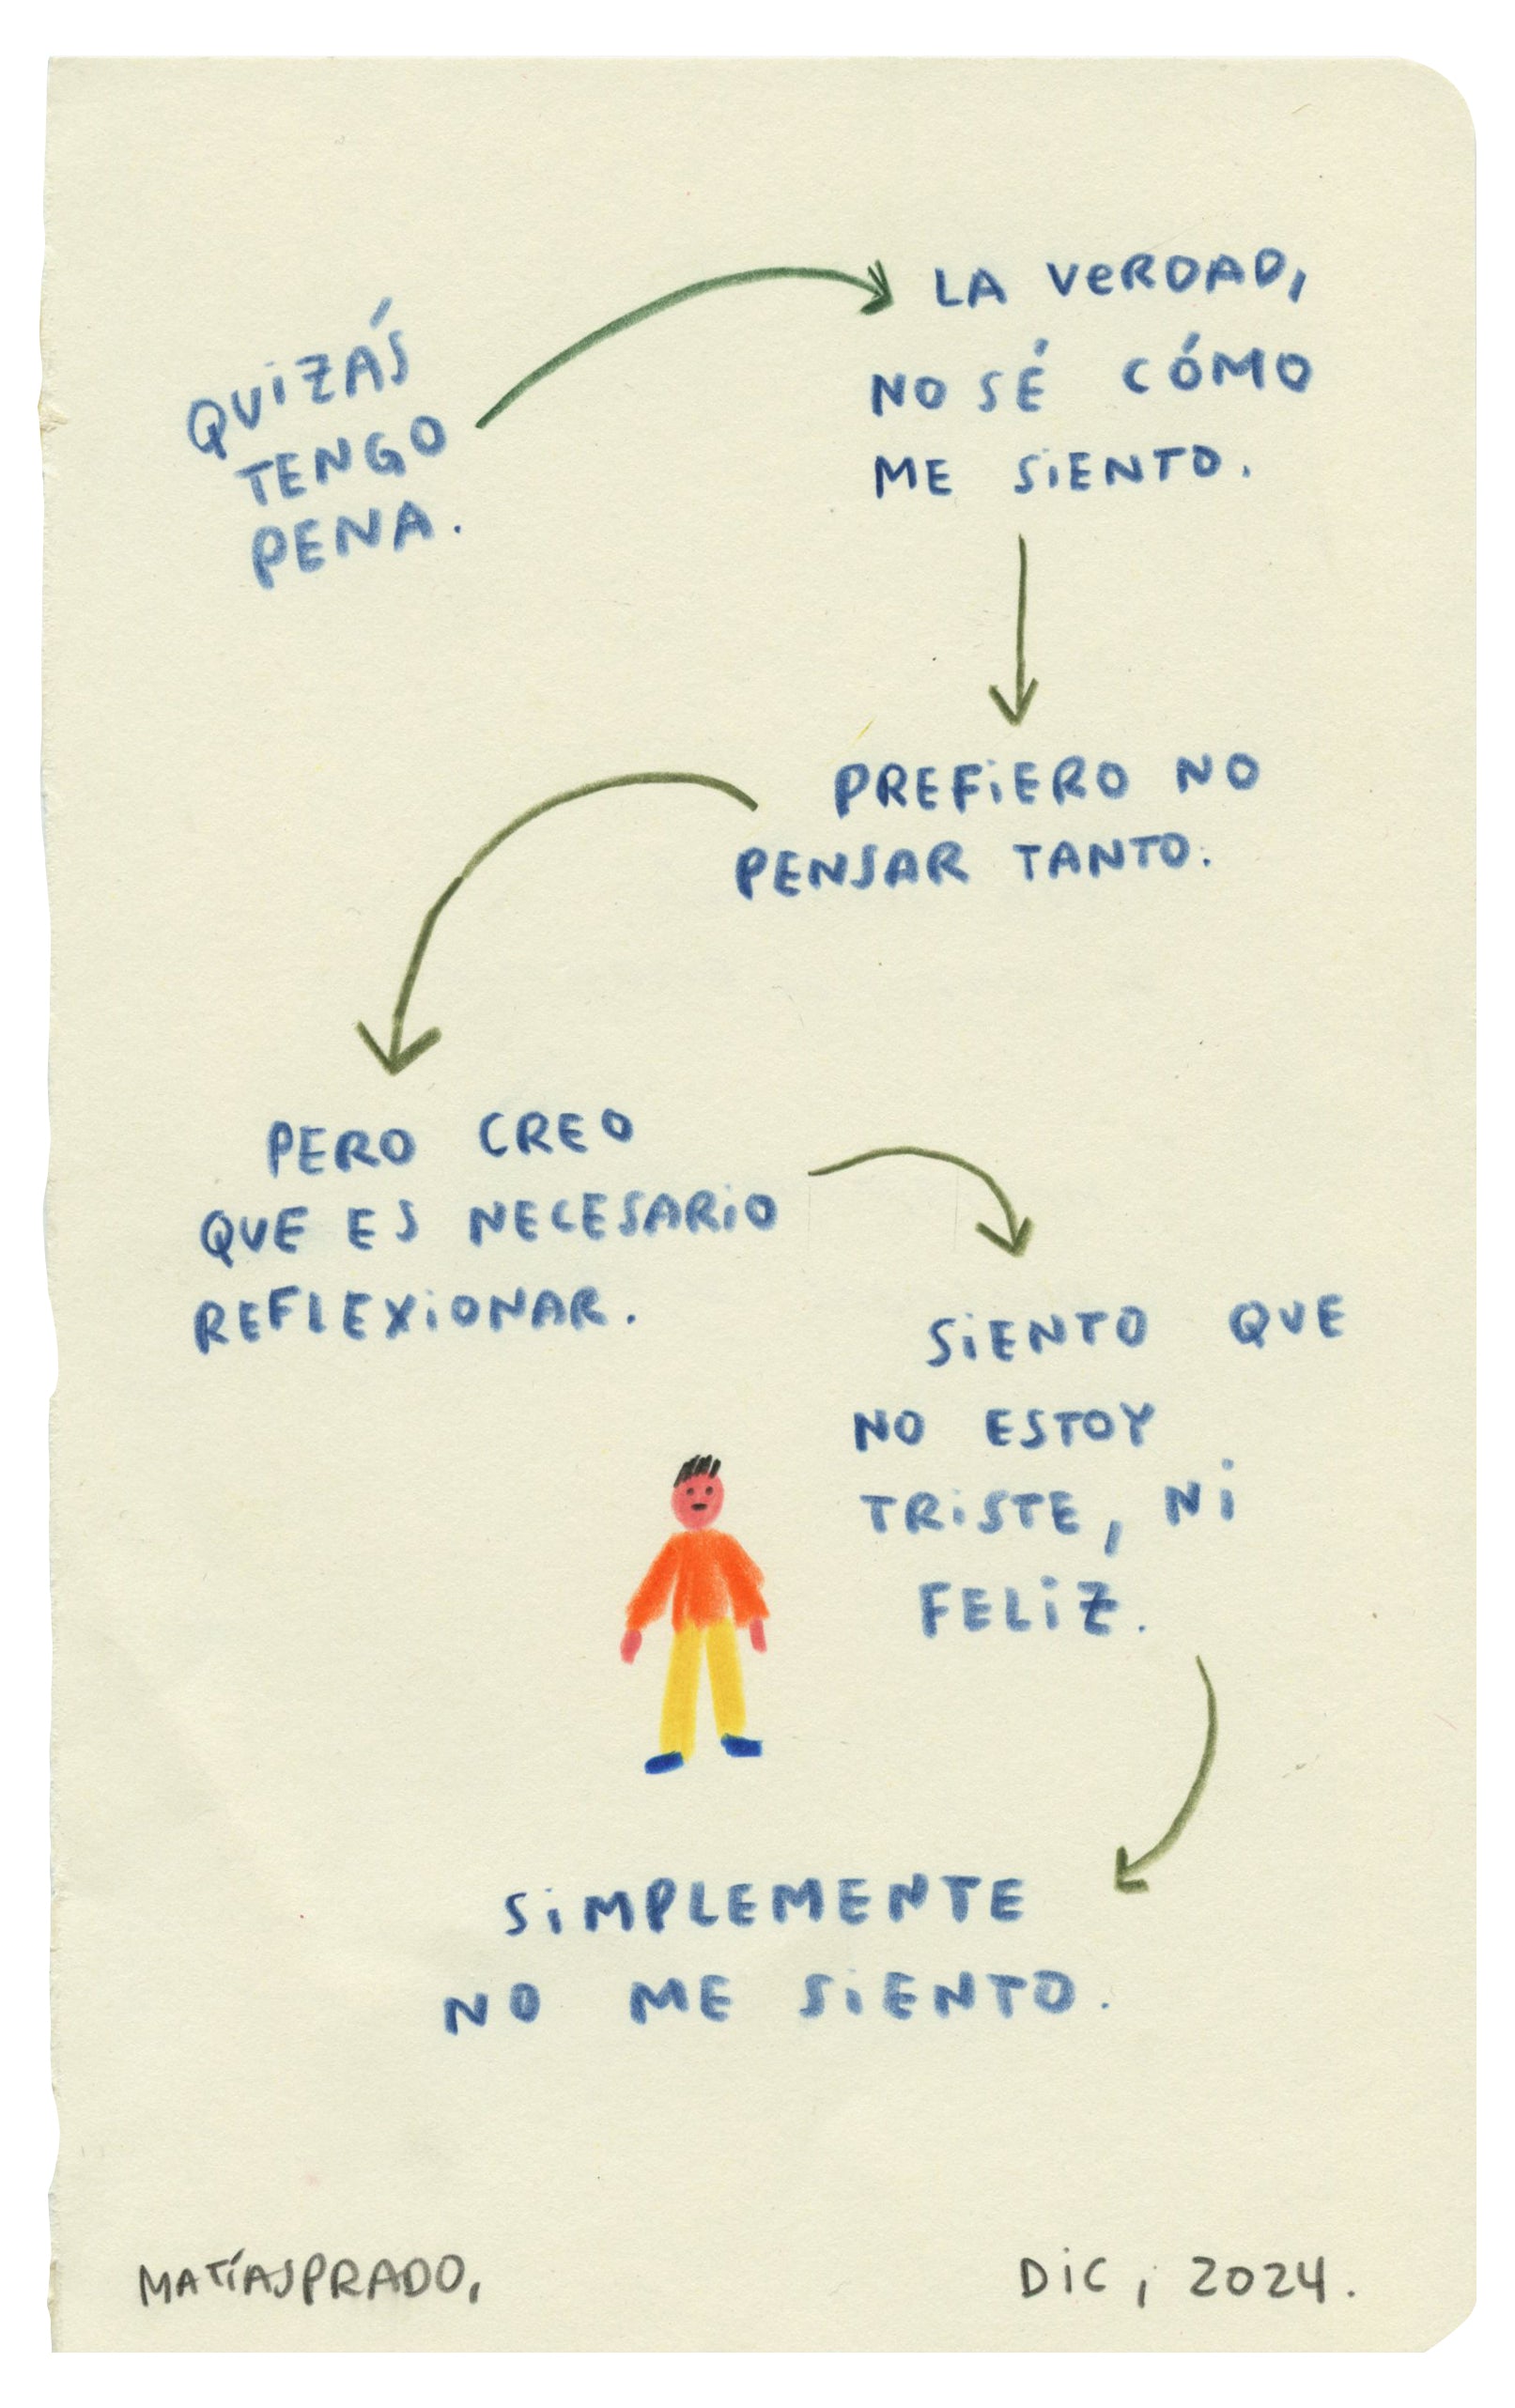 QUIZÁS
TENGO
PENA.
LA VeRDAD,
NO SÉ CÓMO
ME SiENTO.
PREFiERO NO
PENSAR TANTO.
PERO CREO
QUE ES NECESARiO
REFLEXiONAR.
SiENTO QUE
NO ESTOY
TRiSTE, Ni
FELiZ.
SiMPLEMENTE
NO ME SiENTO.
MATíASPRADO,
DiC, 2024.